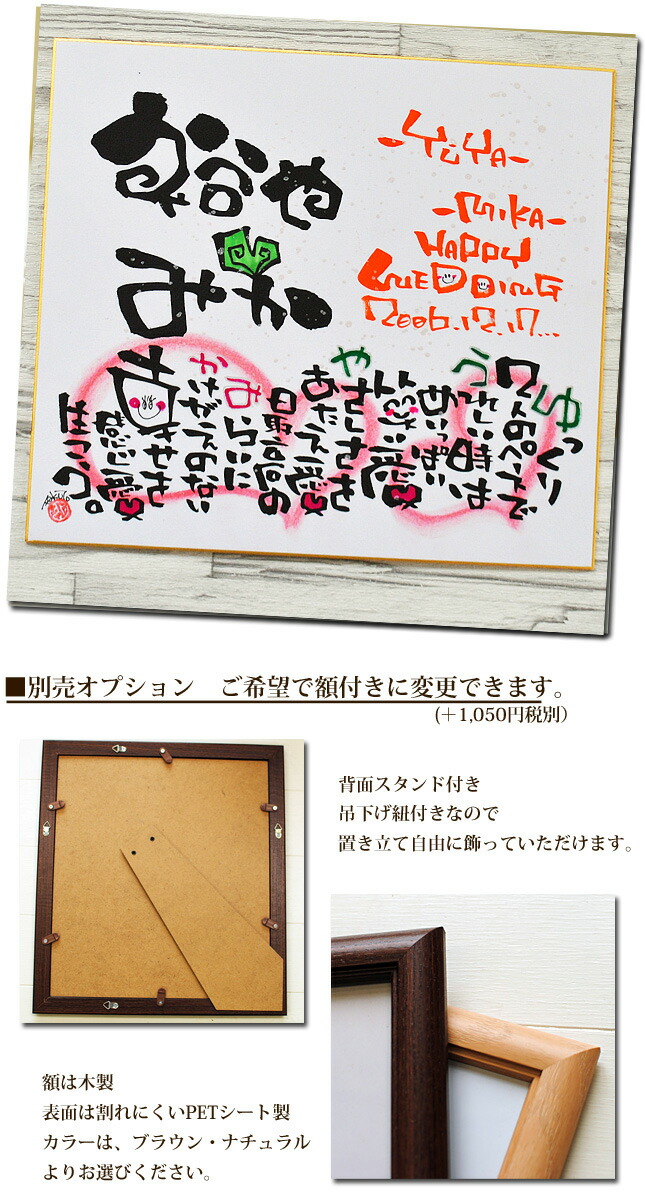 裕や
みか
-YUYA-
-MIKA-
HAPPY
WEDDING
2006.12.17...
ゆっくり
2人のペースで
うれしい時は
めいっぱい
やさしさを
あたえ愛
最高の
みらいに
かけがえのない
幸せを
感じ愛
■別売オプション　ご希望で額付きに変更できます。
(＋1,050円税別)
背面スタンド付き
吊下げ紐付きなので
置き立て自由に飾っていただけます。
額は木製
表面は割れにくいPETシート製
カラーは、ブラウン・ナチュラル
よりお選びください。